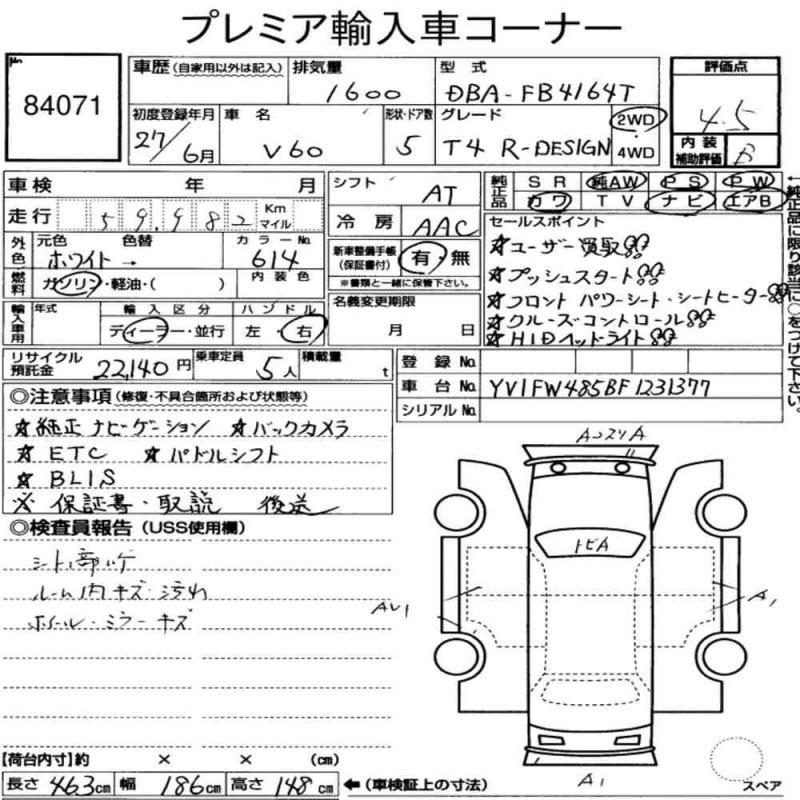 プレミア輸入車コーナー
No
84071
車歴(自家用以外は記入)
排気量
1600
型式
DBA-FB4164T
評価点
4.5
初度登録年月
27/6月
車名
V60
形状・ドア数
5
グレード
T4 R-DESIGN
2WD
4WD
内装
補助評価
B
車検 年 月
シフト
AT
純正品
SR 純AW PS PW
カワ TV ナビ エアB
走行
59,982
Km
マイル
冷房
AAC
外色
元色
色替
カラーNo.
ホワイト→
614
新車整備手帳
(保証書付)
有・無
※書類と一緒に保管下さい。
セールスポイント
★ユーザー買取!!
★プッシュスタート!!
★フロント パワーシート・シートヒーター!!
★クルーズコントロール!!
★HIDヘッドライト!!
燃料
ガソリン・軽油・( )
内装色
名義変更期限
月 日
輸入車用
年式
輸入区分
ハンドル
ディーラー・並行
左・右
リサイクル
預託金
22,140円
乗車定員
5人
積載量
t
登録No.
車台No.
YV1FW485BF1231377
シリアルNo.
←純正品に限り該当に○をつけて下さい。
◎注意事項(修復・不具合箇所および状態等)
★純正ナビゲーション ★バックカメラ
★ETC ★パドルシフト
★BLIS
※保証書・取説 後送
◎検査員報告(USS使用欄)
ルーム内キズ・汚れ
ホイール・ミラーキズ
トビA
AU1
A1
A1
スペア
【荷台内寸】約 × × (cm)
長さ 463cm 幅 186cm 高さ 148cm ←(車検証上の寸法)